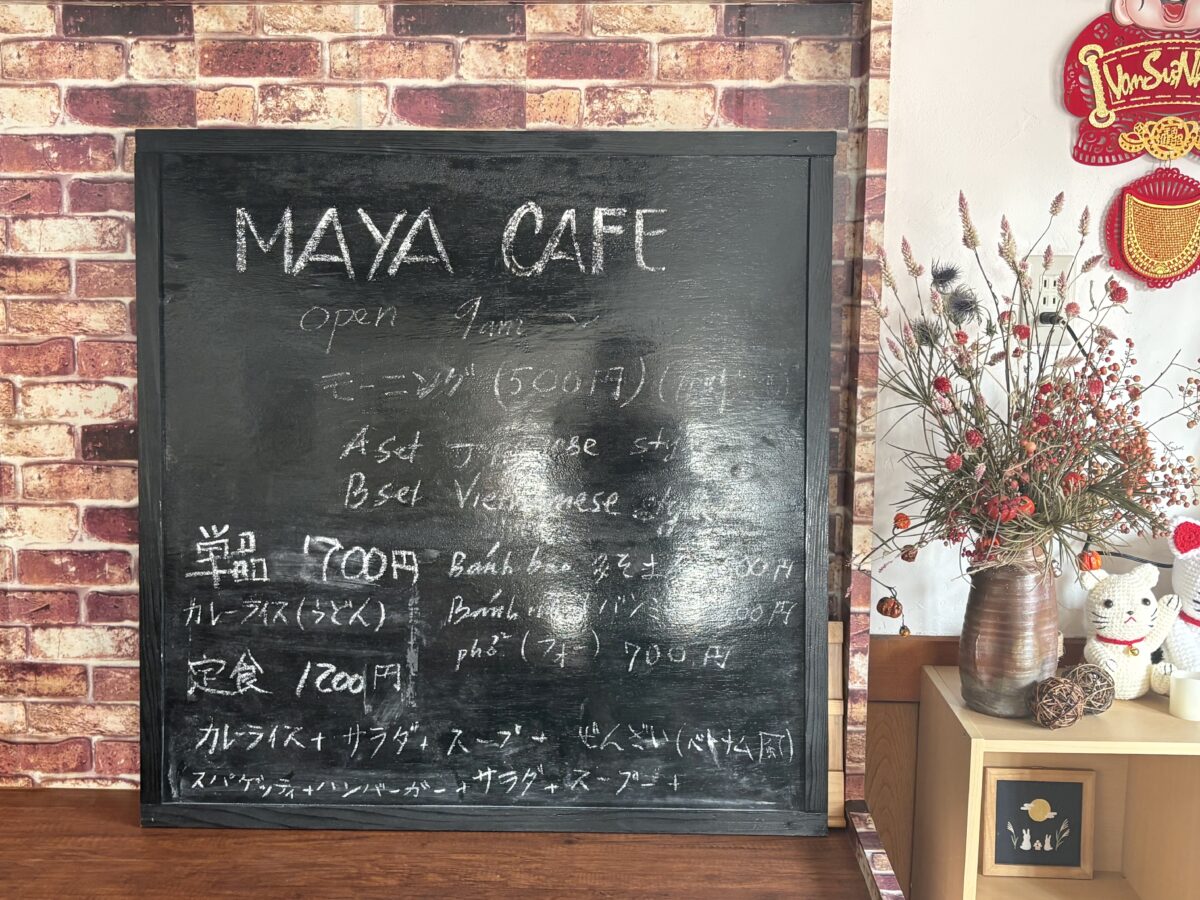 MAYA CAFE
open 9am ~
モーニング (500円)
A set Japanese style
B set Vietnamese style
単品 700円
カレーライス (うどん)
定食 1200円
Bánh bao みそ
Bánh
phở (フォー) 700円
カレーライス + サラダ + スープ + ぜんざい (ベトナム風)
スパゲッティ + ハンバーガー + サラダ + スープ +
Vạn Sự